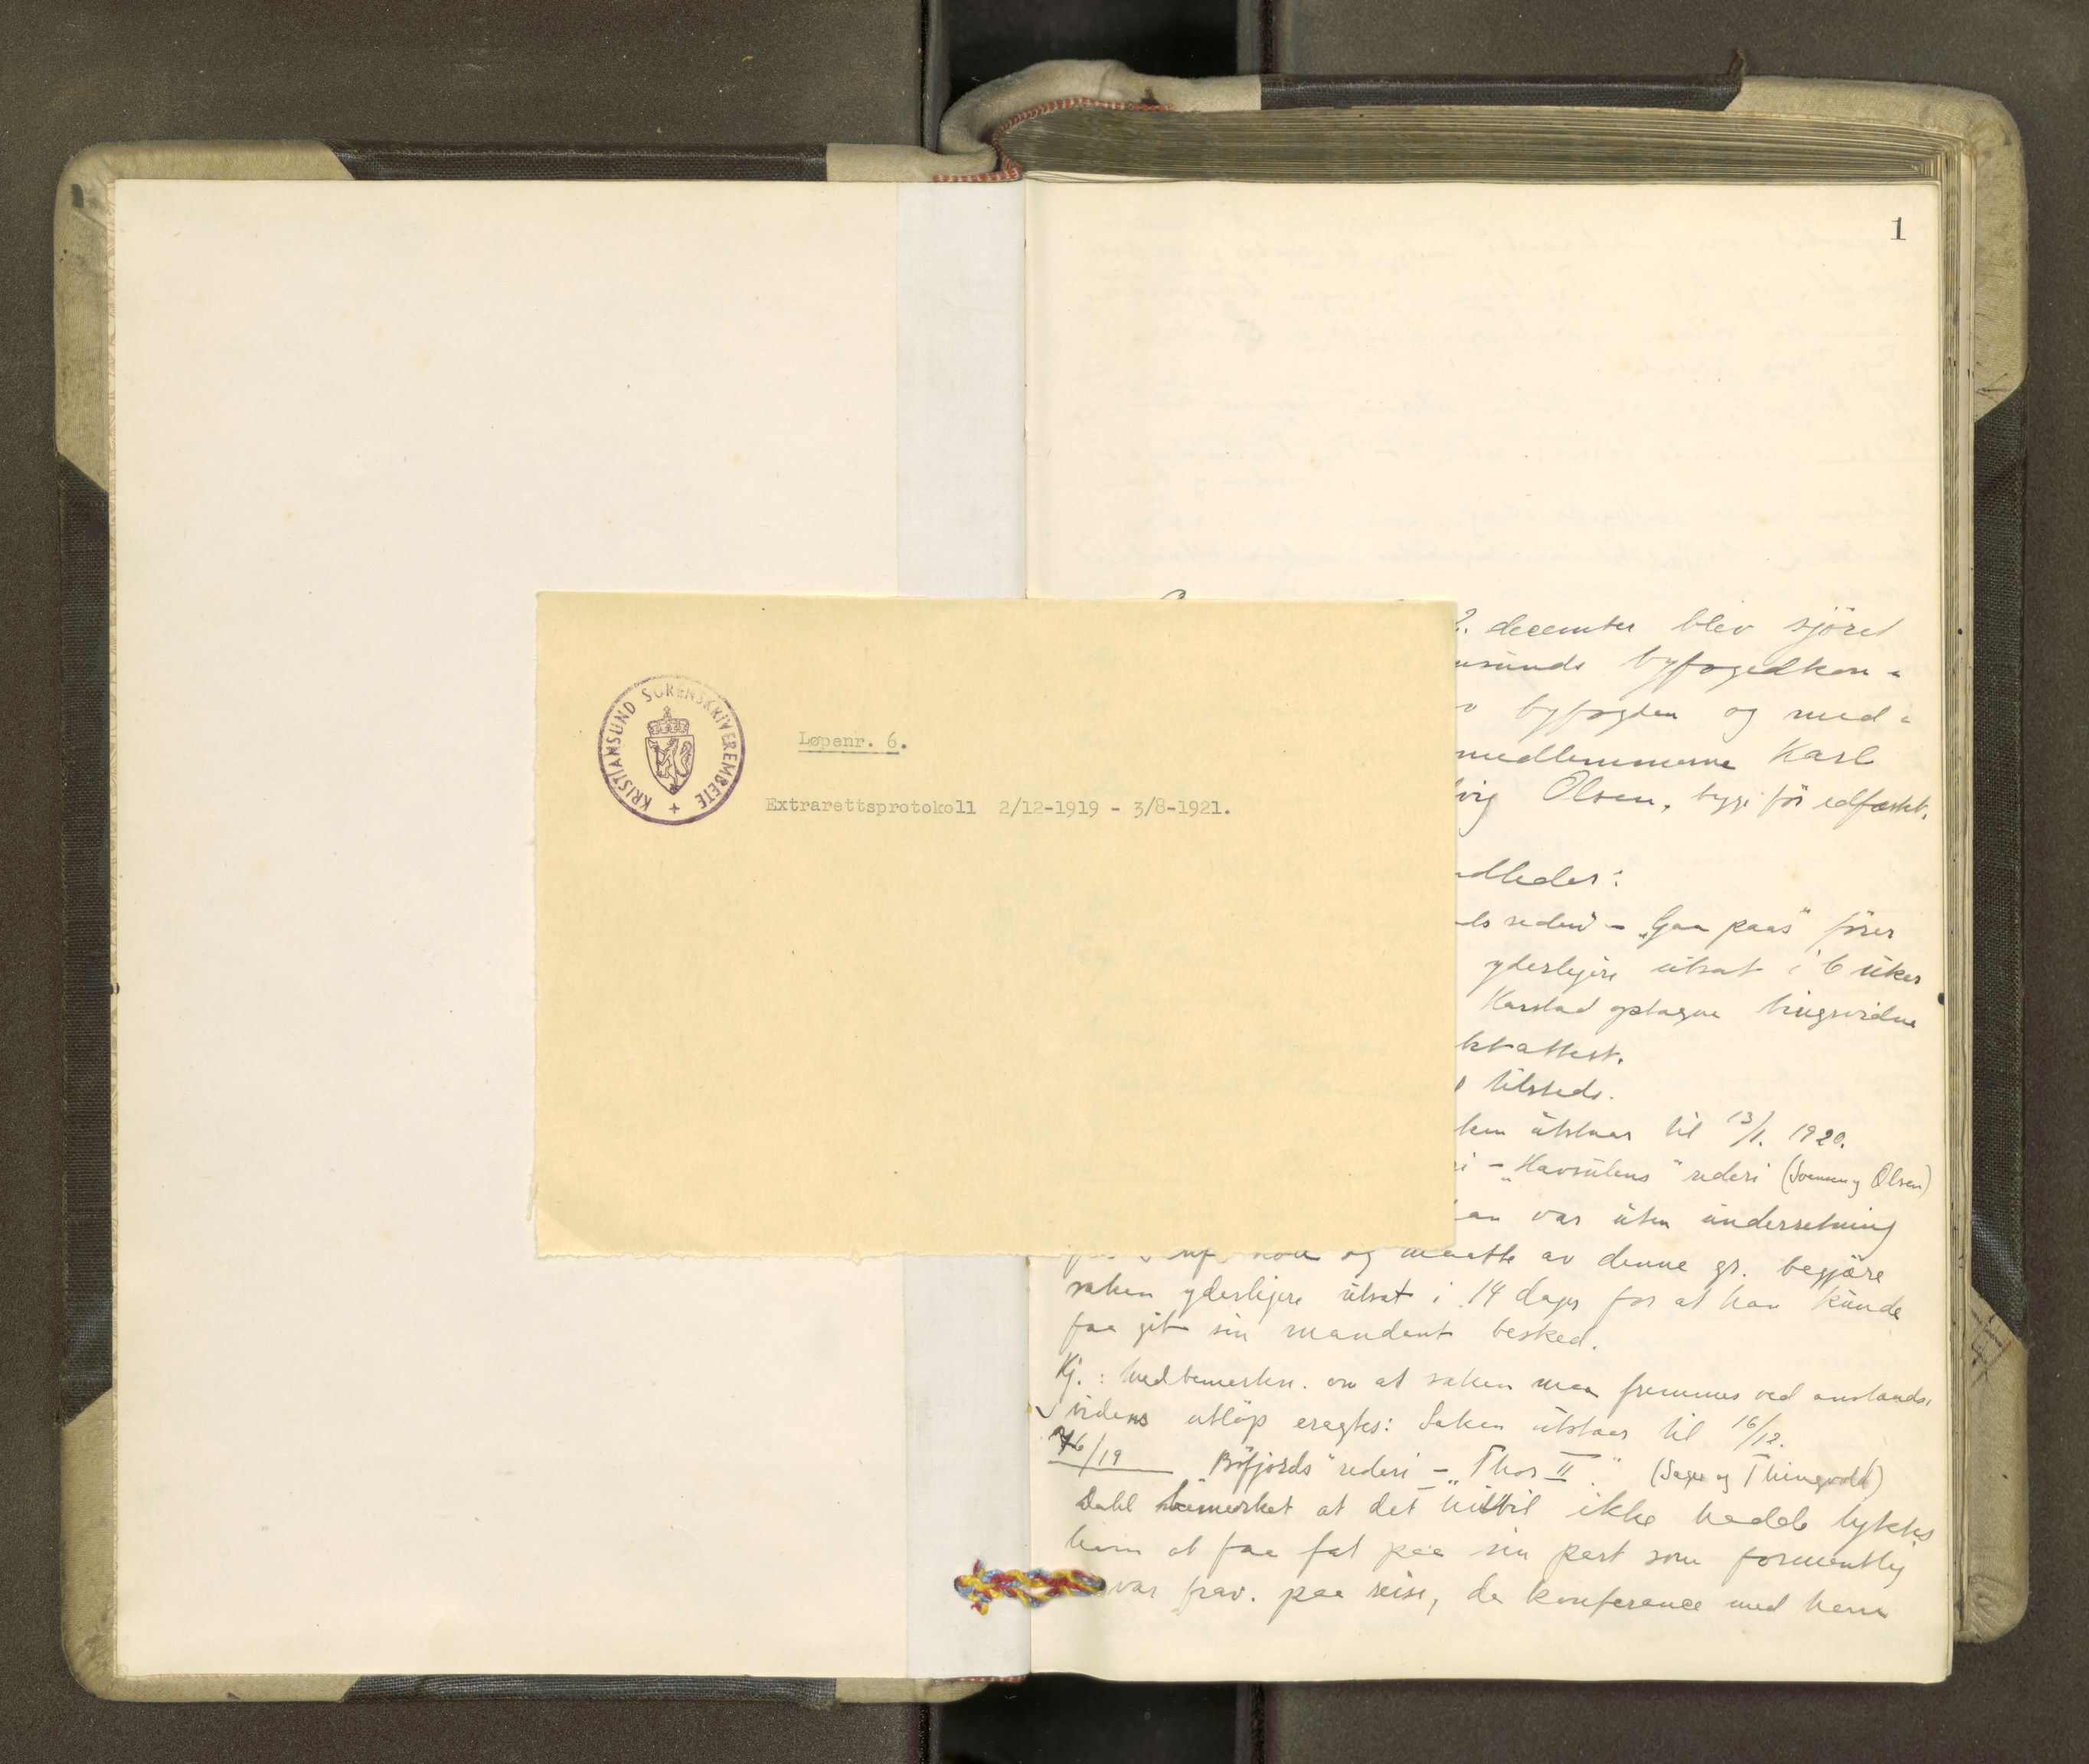 1
KRISTIANSUND SORENSKRIVEREMBETE
Løpenr. 6.
Extrarettsprotokoll 2/12-1919 - 3/8-1921.
2. december blev sjöret
nsunds byfogedkon-
byfogden og med-
medlemmerne Karl
vig Olsen, begge för edfæstet.
dledes:
ds rederi - "Gaa paas" förer
yderligere utsat i 6 uker
Karstad optagne tingsvidne
ktattest.
tilstede.
ken utstaar til 13/1. 1920.
i - "Havsulens" rederi (Svensen og Olsen)
an var uten underretning
og maatte av denne gr. begjære
saken yderligere utsat i 14 dager for at han kunde
faa git sin mandant besked.
Kj.: Med bemerkn. om at saken maa fremmes ved anstands-
tidens utlöp eragtes: Saken utstaar til 16/12.
46/19 "Böfjords" rederi - "Thor II" (Sager og Thingvold)
Dahl bemerket at det hittil ikke hadde lyktes
ham at faa fat paa sin part som formentlig
var frav. paa reise, da konferance med ham